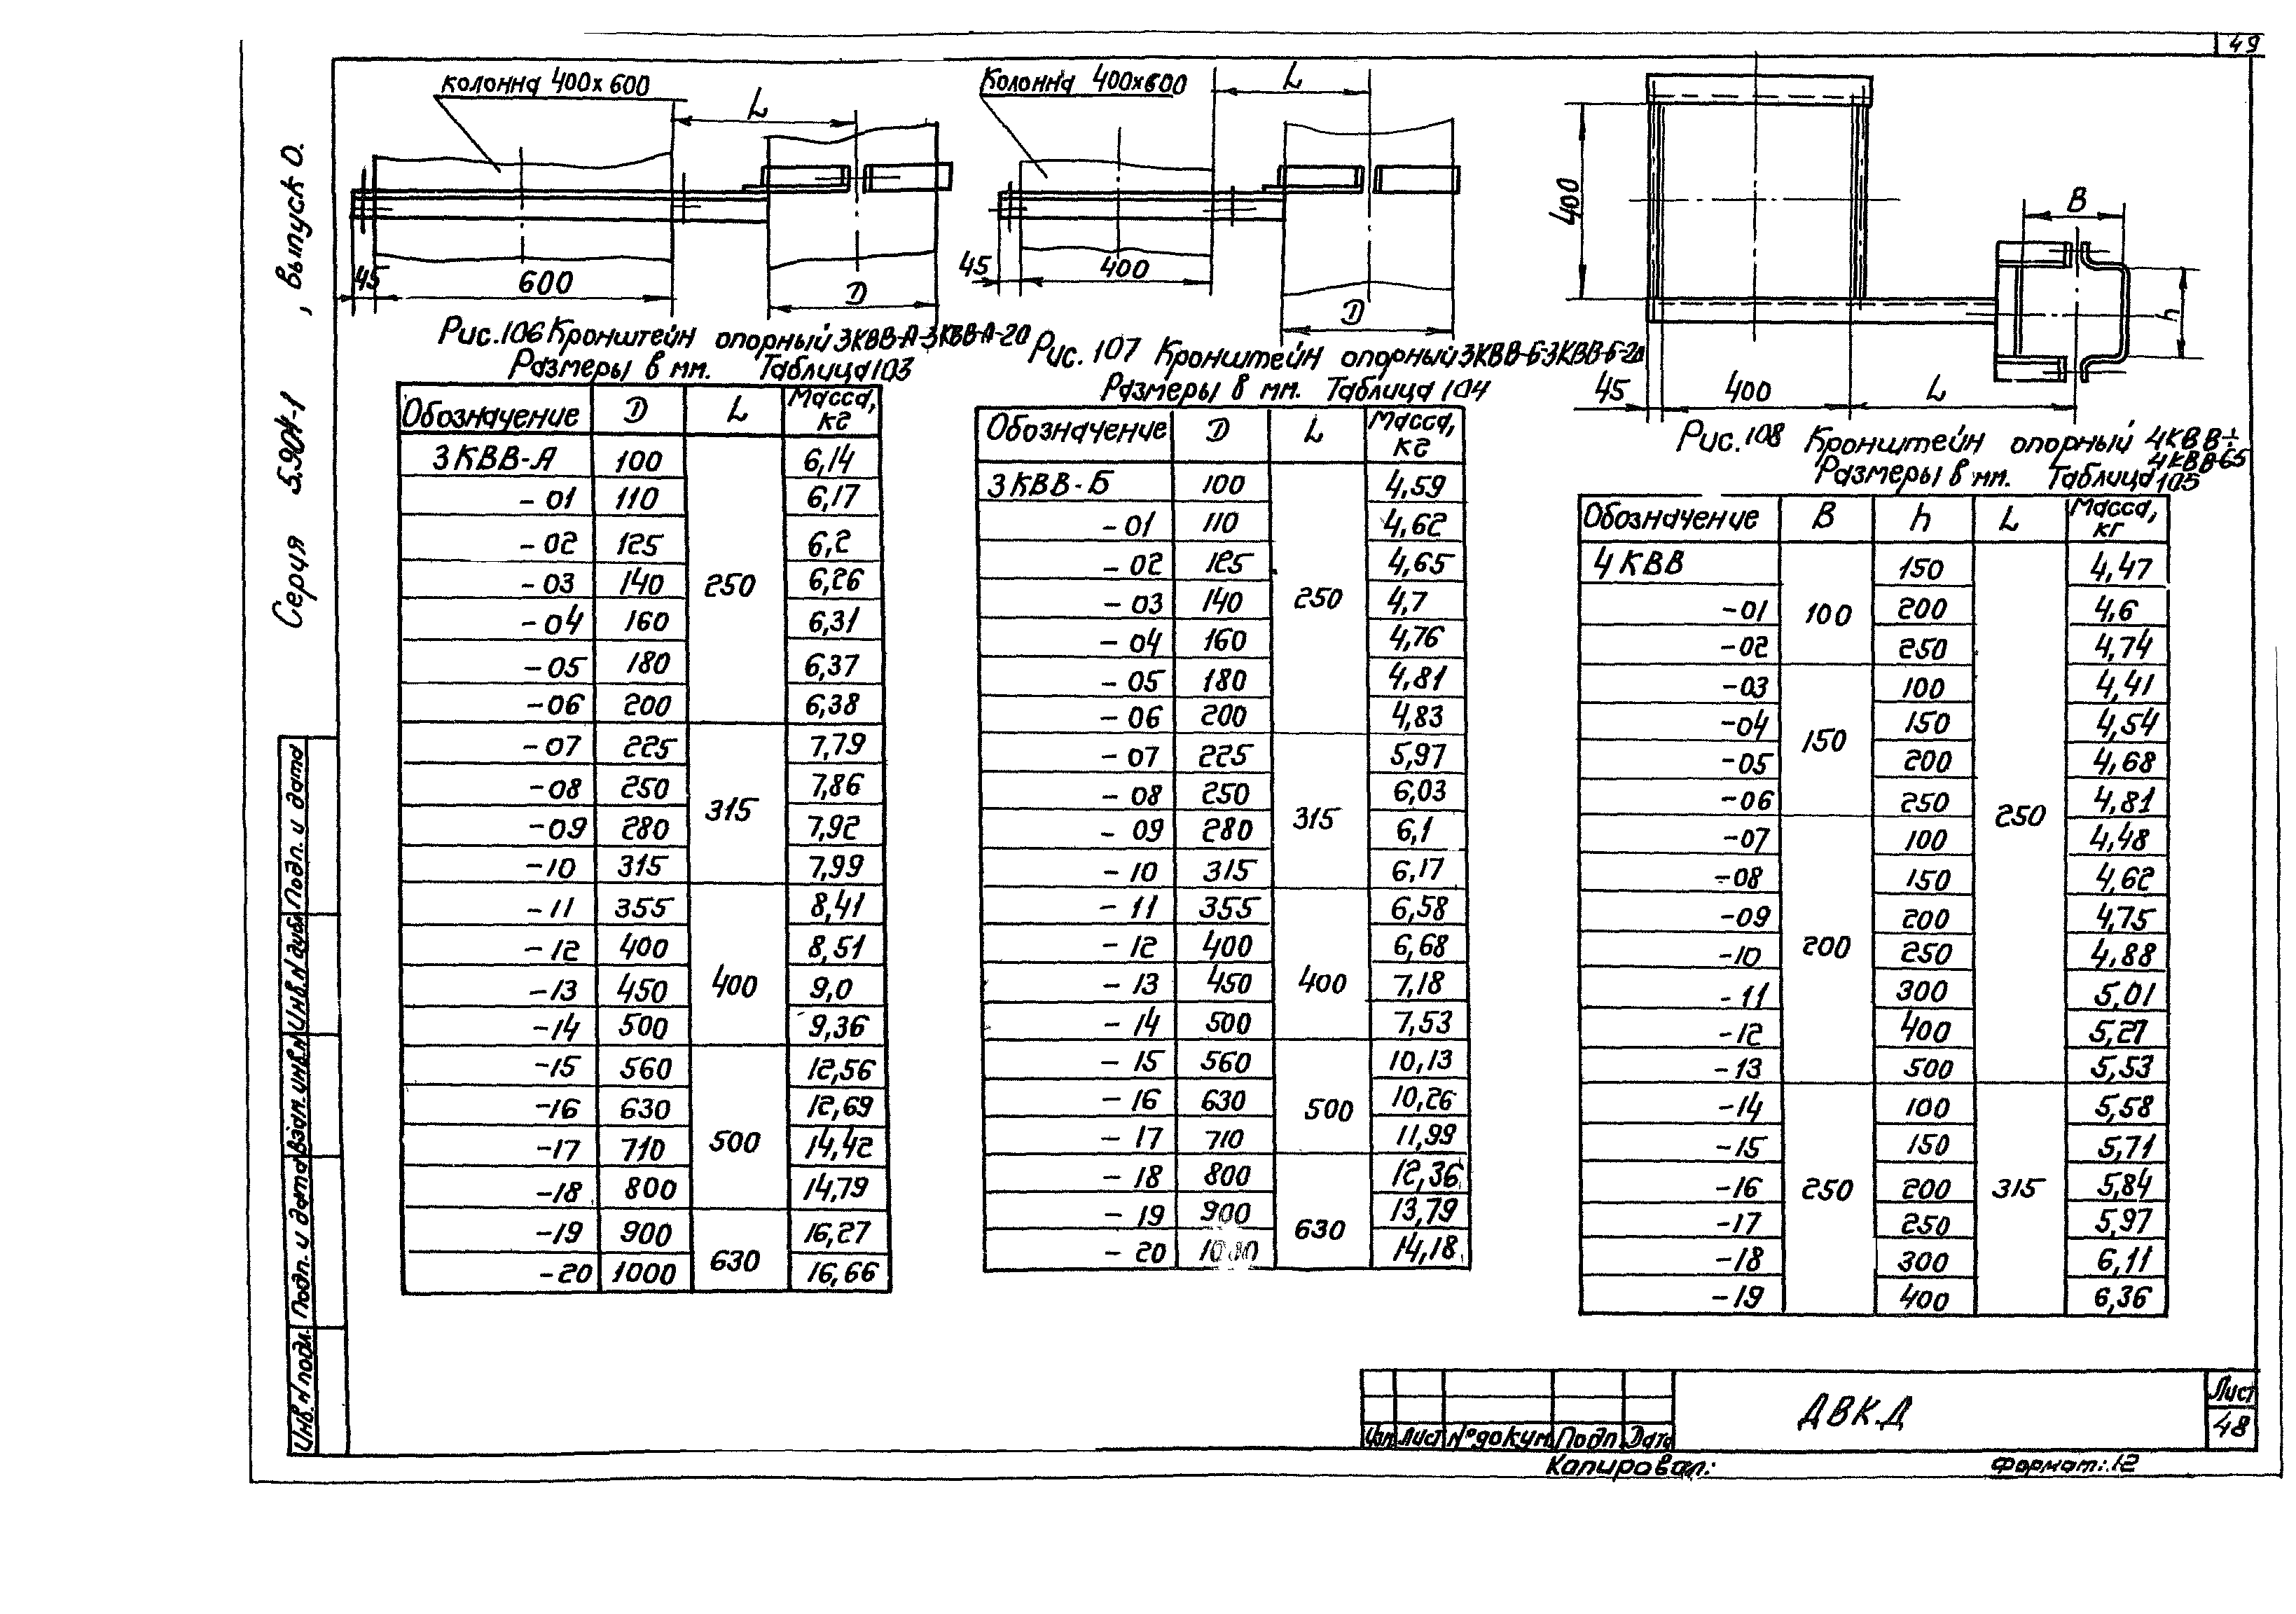 49
Серия 5.904-1 , выпуск 0.
колонна 400х600
L
45
600
D
Рис.106 Кронштейн опорный 3КВВ-А-3КВВ-А-20
Размеры в мм. Таблица 103
Обозначение D L Масса, кг
3КВВ-А 100 250 6,14
-01 110 6,17
-02 125 6,2
-03 140 6,26
-04 160 6,31
-05 180 6,37
-06 200 6,38
-07 225 315 7,79
-08 250 7,86
-09 280 7,92
-10 315 7,99
-11 355 400 8,41
-12 400 8,51
-13 450 9,0
-14 500 9,36
-15 560 500 12,56
-16 630 12,69
-17 710 14,42
-18 800 14,79
-19 900 630 16,27
-20 1000 16,66
Колонна 400х600
L
45
400
D
Рис. 107 Кронштейн опорный 3КВВ-Б-3КВВ-Б-20
Размеры в мм. Таблица 104
Обозначение D L Масса, кг
3КВВ-Б 100 250 4,59
-01 110 4,62
-02 125 4,65
-03 140 4,7
-04 160 4,76
-05 180 4,81
-06 200 4,83
-07 225 315 5,97
-08 250 6,03
-09 280 6,1
-10 315 6,17
-11 355 400 6,58
-12 400 6,68
-13 450 7,18
-14 500 7,53
-15 560 500 10,13
-16 630 10,26
-17 710 11,99
-18 800 630 12,36
-19 900 13,79
-20 1000 14,18
400
B
h
45
400
L
Рис.108 Кронштейн опорный 4КВВ÷
4КВВ-65
Размеры в мм. Таблица 105
Обозначение B h L Масса, кг
4КВВ 100 150 250 4,47
-01 200 4,6
-02 250 4,74
-03 150 100 4,41
-04 150 4,54
-05 200 4,68
-06 250 4,81
-07 200 100 4,48
-08 150 4,62
-09 200 4,75
-10 250 4,88
-11 300 5,01
-12 400 5,27
-13 500 5,53
-14 250 100 315 5,58
-15 150 5,71
-16 200 5,84
-17 250 5,97
-18 300 6,11
-19 400 6,36
Инв.№подл. Подп. и дата Взам.инв.№ Инв.№дубл. Подп. и дата
Изм Лист №докум Подп. Дата
ДВК.Д
Лист
48
Копировал:
Формат: 12